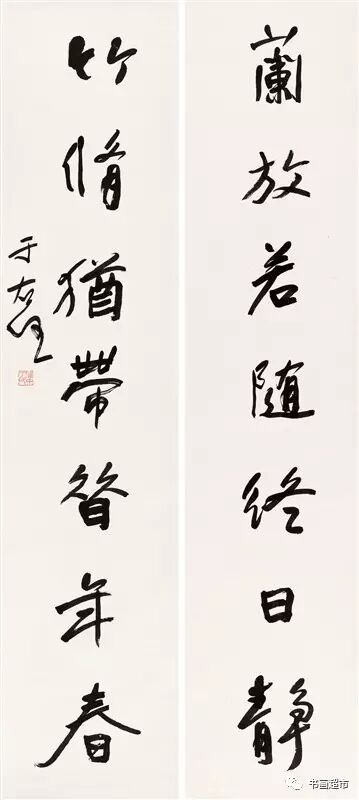 蘭放若隨終日靜
竹脩猶帶昔年春
于右任
书画超市